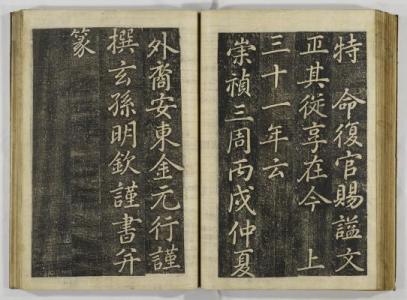 特 命復官賜諡文
正其從享在今 上
三十一年云
崇禎三周丙戌仲夏
外裔安東金元行謹
撰玄孫明欽謹書幷
篆